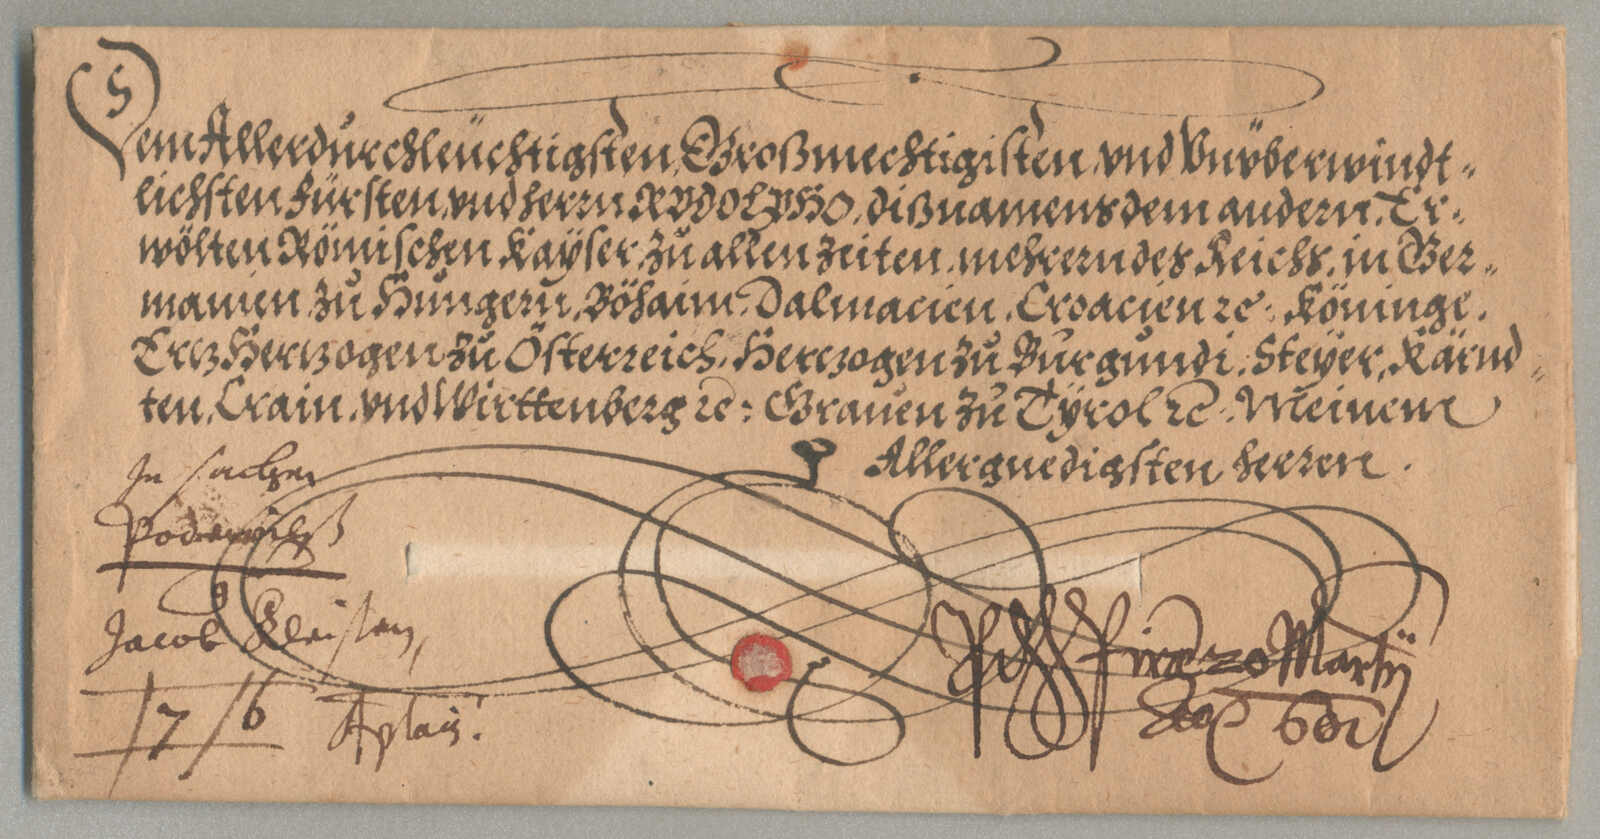 Dem Allerdurchleüchtigsten, Großmechtigisten, vnd Vnvberwindt-
lichsten Fürsten, vnd herrn RVDOLPHO, diß namens dem andern, Er-
wölten Römischen Kayser, zu allen zeiten, mehrern des Reichs, in Ger-
manien, zu Hungern, Böhaim, Dalmacien, Croacien ꝛc: Köninge,
Ertz Hertzogen zu Österreich, Hertzogen zu Burgundi, Steyer, Kärnd-
ten, Crain, vnd Wirttenberg ꝛc: Grauen zu Tyrol ꝛc: Meinem
Allergnedigsten herren.
In sachen
Podewilß
Jacob Kleisten,
17 / 6
Martij
602